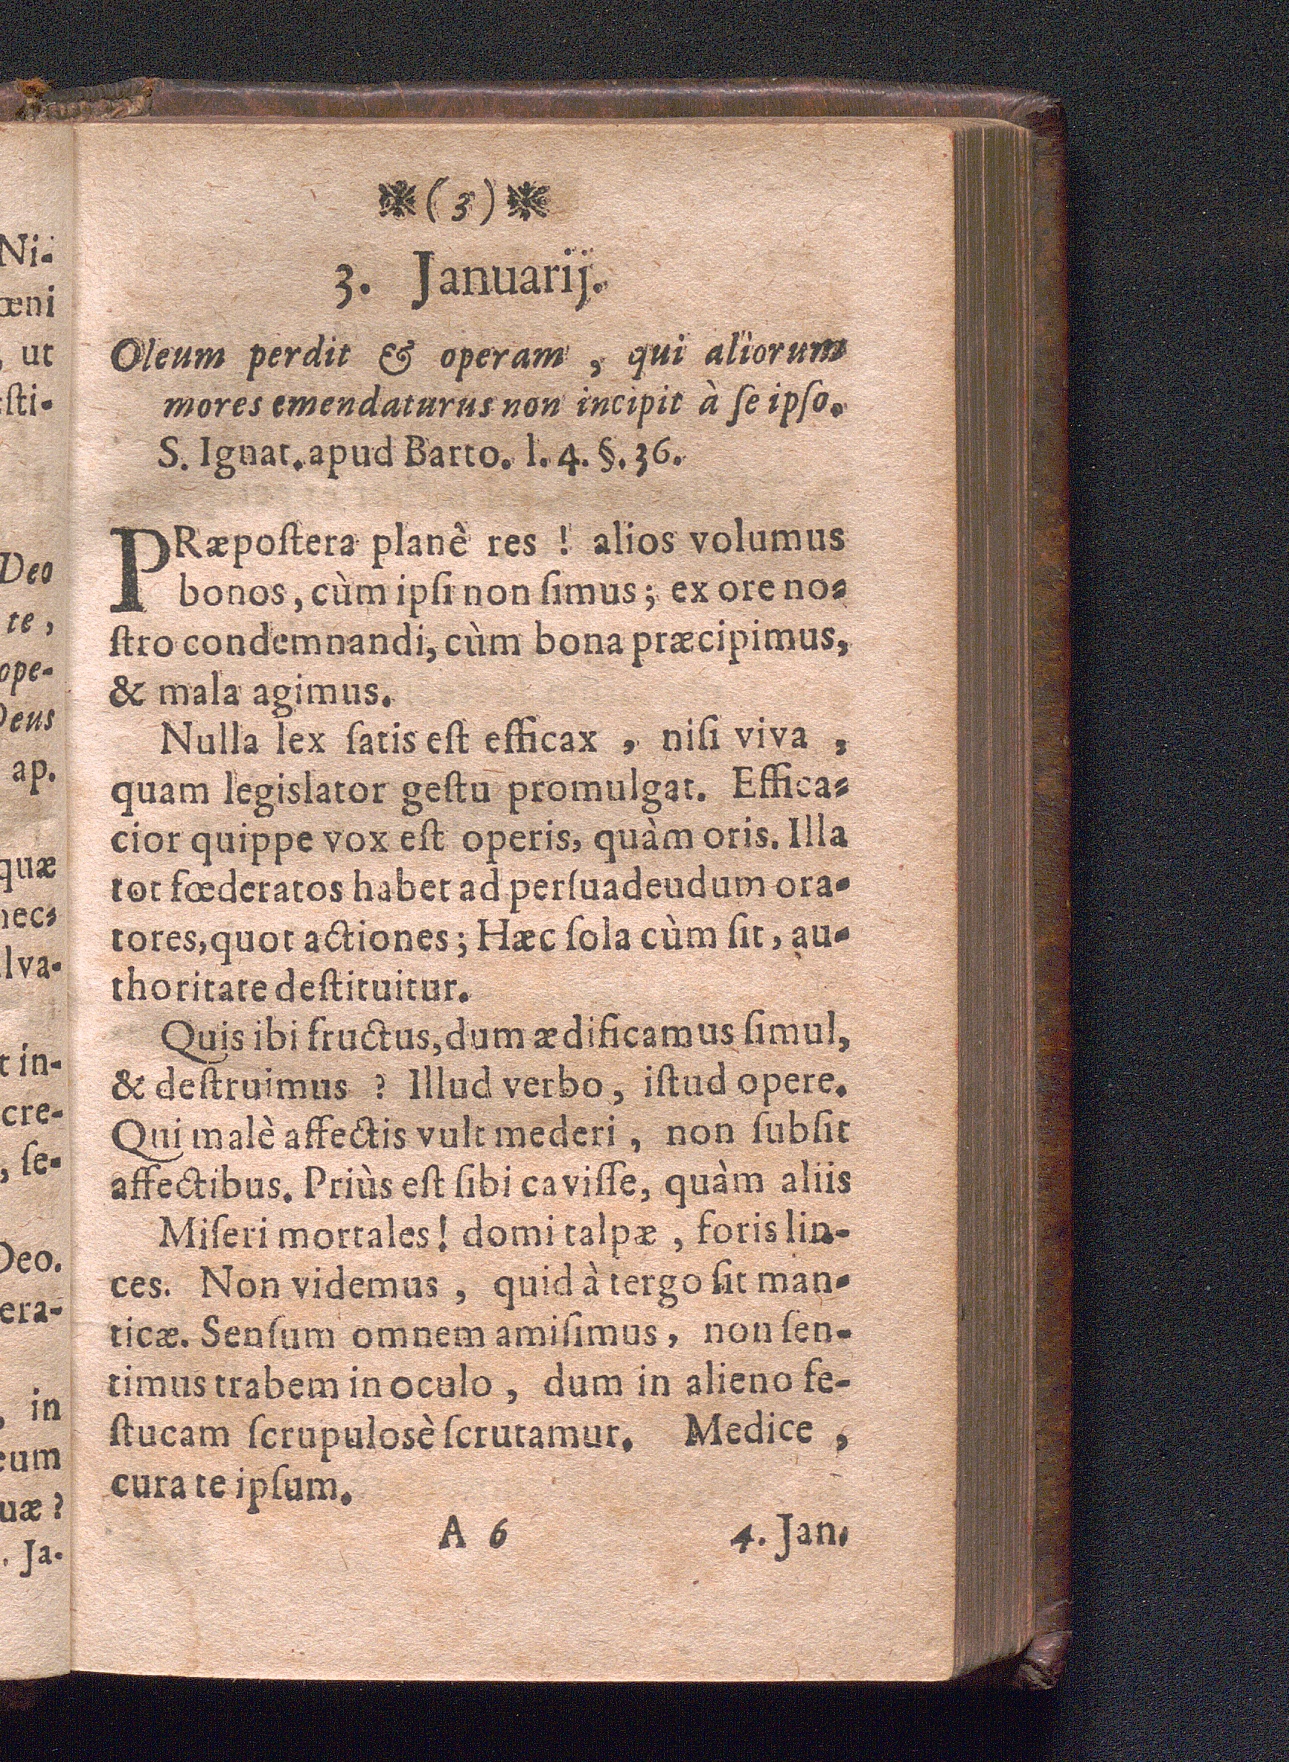 Ni-
œni
, ut
sti-
Deo
te,
ope-
Deus
ap.
quæ
nec-
lva-
t in-
cre-
, ſe-
Deo.
era-
, in
eum
uæ?
. Ja-
(3)
3. Januarij.
Oleum perdit & operam, qui aliorum
mores emendaturus non incipit à ſe ipſo.
S. Ignat. apud Barto. l. 4. §. 36.
PRæpoſtera planè res! alios volumus
bonos, cùm ipſi non ſimus; ex ore no-
ſtro condemnandi, cùm bona præcipimus,
& mala agimus.
Nulla lex ſatis eſt efficax, niſi viva,
quam legislator geſtu promulgat. Effica-
cior quippe vox eſt operis, quàm oris. Illa
tot fœderatos habet ad perſuadeudum ora-
tores, quot actiones; Hæc ſola cùm ſit, au-
thoritate deſtituitur.
Quis ibi fructus, dum ædificamus ſimul,
& deſtruimus? Illud verbo, iſtud opere.
Qui malè affectis vult mederi, non ſubſit
affectibus. Priùs eſt ſibi caviſſe, quàm aliis
Miſeri mortales! domi talpæ, foris lin-
ces. Non videmus, quid à tergo ſit man-
ticæ. Senſum omnem amiſimus, non ſen-
timus trabem in oculo, dum in alieno fe-
ſtucam ſcrupulosè ſcrutamur. Medice,
cura te ipſum.
A 6 4. Jan.